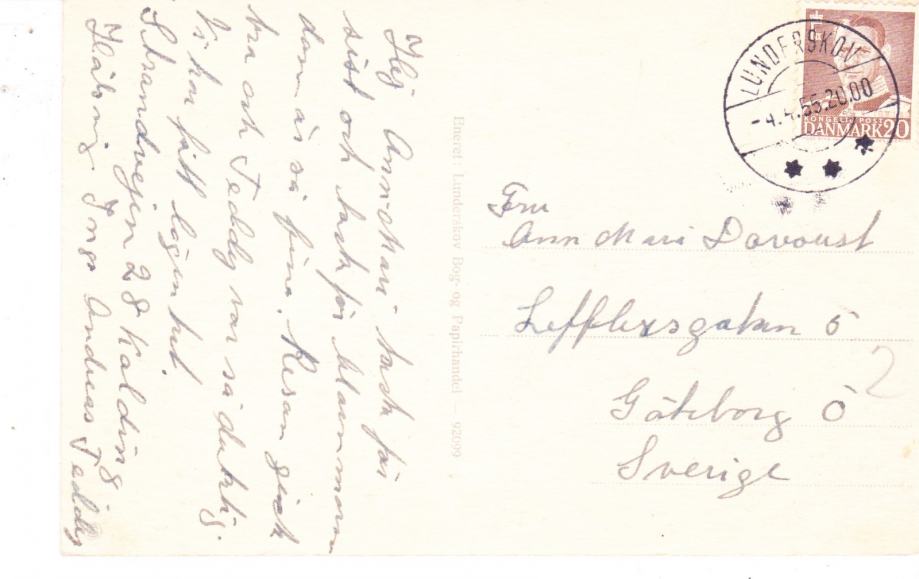 Hej Ann-Mari tack för
sist och tack för blommorna
dom är så fina. Resan gick
bra och Teddy var så duktig.
Vi har fått lägenhet.
Strandvejen 28 Kolding
Hälsning Inga Andreas Teddy
Eneret: Lunderskov Bog- og Papirhandel — 92099
LUNDERSKOV
-4.4.55.20.00
KONGELIG POST
DANMARK 20
Fru
Ann Mari Davoust
Lefflersgatan 5
Göteborg Ö
Sverige
2